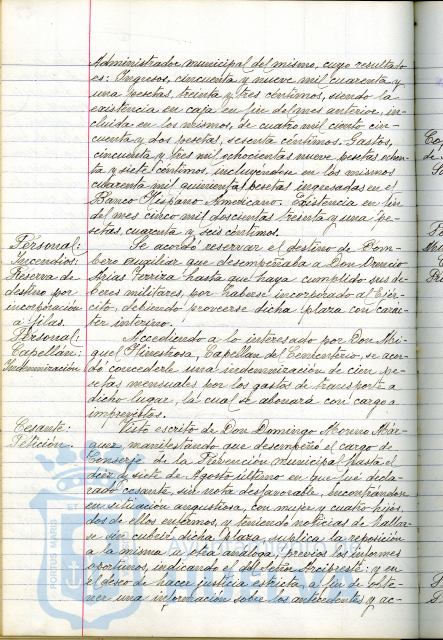 Administrador municipal del mismo, cuyo resultado
es: Ingresos, cincuenta y nueve mil cuarenta y
una pesetas treinta y tres céntimos, siendo la
existencia en caja en fin del mes anterior, in-
cluida en los mismos, de cuatro mil ciento cin-
cuenta y dos pesetas, sesenta céntimos. Gastos,
cincuenta y tres mil ochocientas nueve pesetas ochen-
ta y siete céntimos, incluyendose en los mismos
cuarenta mil quinientas pesetas ingresadas en el
Banco Hispano Americano. Existencia en fin
del mes cinco mil doscientas treinta y una pe-
setas, cuarenta y seis céntimos.
Personal:
Incendios:
Reserva de
destino por
incorporación
a filas.
Se acordó reservar el destino de Bom-
bero auxiliar que desempeñaba a Don Orencio
Arias hasta que haya cumplido sus de-
beres militares, por haberse incorporado al Ejér-
cito, debiendo proveerse dicha plaza con carac-
ter interino.
Personal:
Capellán:
Indemnización
Accediendo a lo interesado por Don Mi-
guel Hinestrosa, Capellan del Cementerio, se acor-
dó concederle una indemnización de cien pe-
setas mensuales por los gastos de transporte a
dicho lugar, la cual se abonará con cargo a
imprevistos.
Cesante:
Petición.
Visto escrito de Don Domingo Moreno Már-
quez manifestando que desempeñó el cargo de
Conserje de la Prevención municipal hasta el
diez y siete de Agosto último en que fué decla-
rado cesante, sin nota desfavorable, encontrandose
en situación angustiosa, con mujer y cuatro hijos,
dos de ellos enfermos, y teniendo noticias de hallar-
se sin cubrir dicha plaza, suplica la reposición
a la misma u otra análoga, previos los informes
oportunos, indicando el del Señor Arcipreste: y en
el deseo de hacer justicia estricta, a fin de obte-
ner una información sobre los antecedentes y ac-
PORTUS MARIS